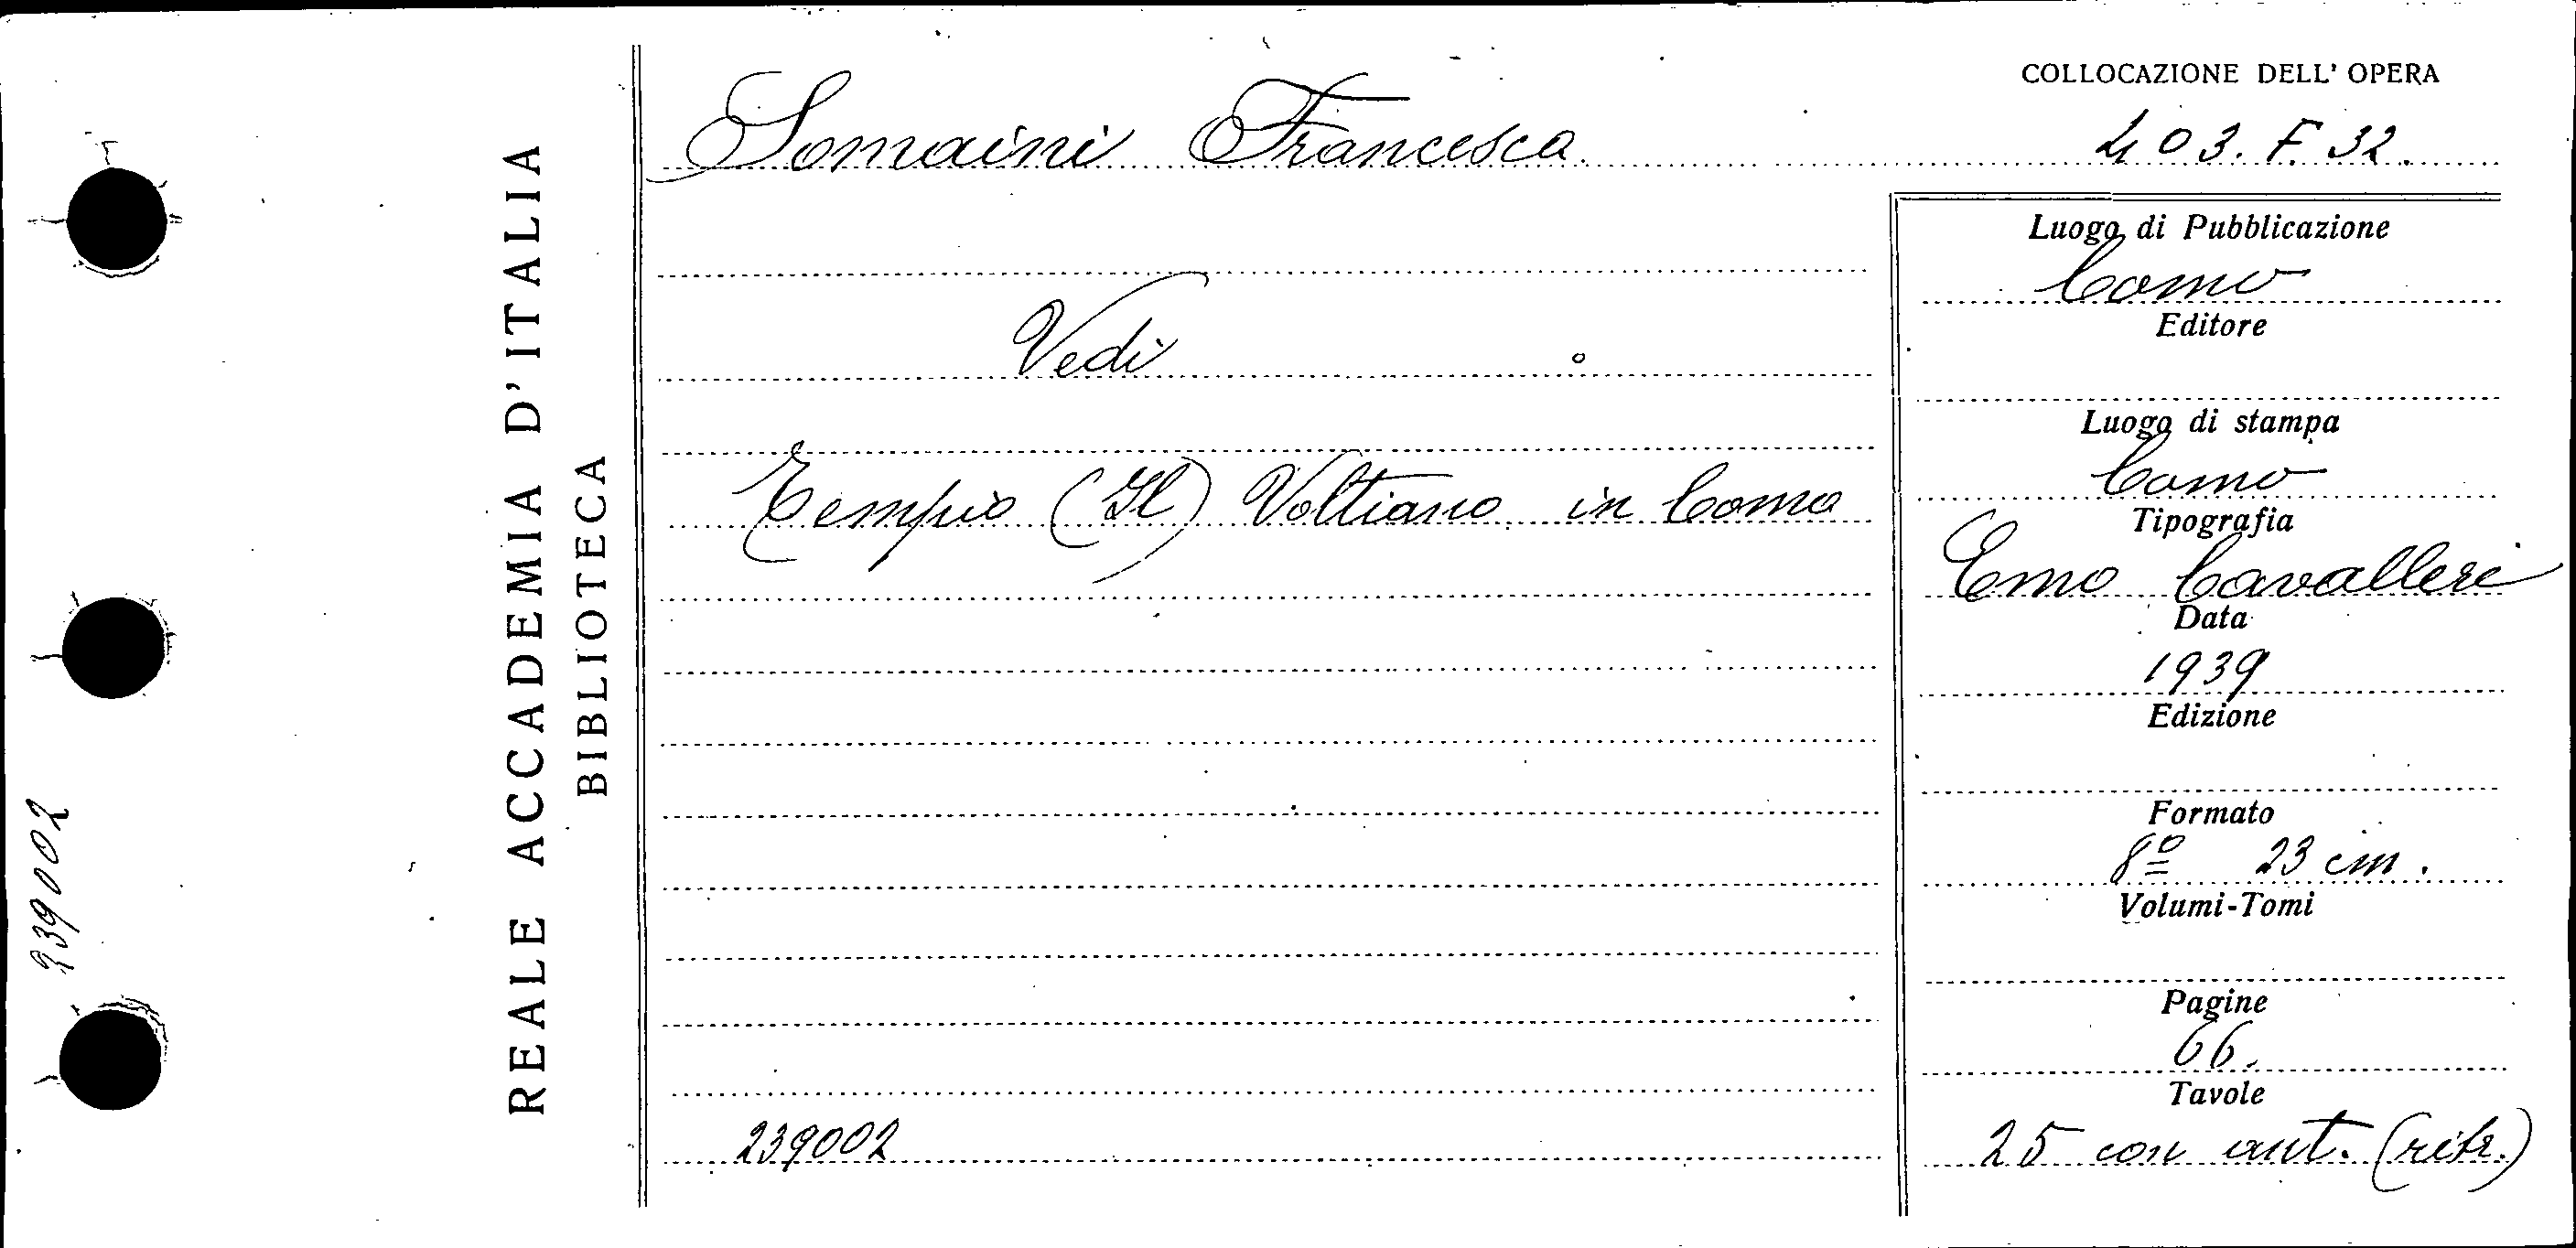 COLLOCAZIONE DELL' OPERA
Somaini Francesco
403. F. 32.
REALE ACCADEMIA D'ITALIA
BIBLIOTECA
Vedi
Tempio (Il) Voltiano in Como
239002
Luogo di Pubblicazione
Como
Editore
Luogo di stampa
Como
Tipografia
Emo Cavalleri
Data
1939
Edizione
Formato
8º 23 cm.
Volumi-Tomi
Pagine
66.
Tavole
25 con ant. (ritr.)
239002